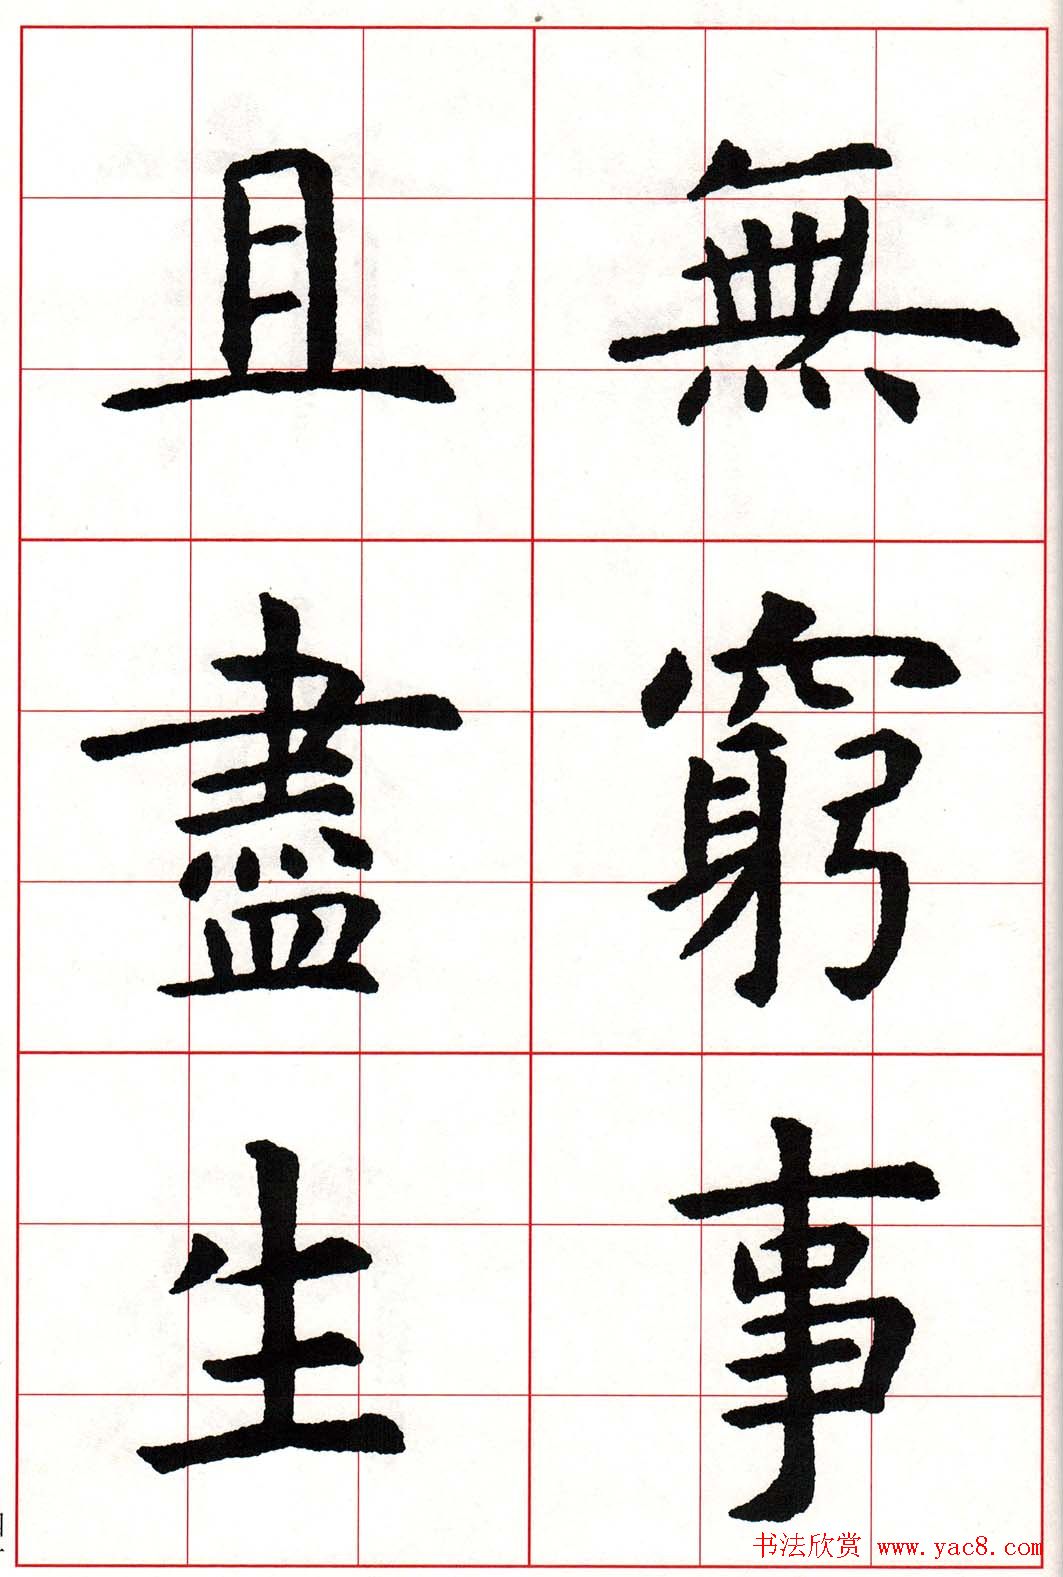 無窮事
且盡生
书法欣赏 www.yac8.com